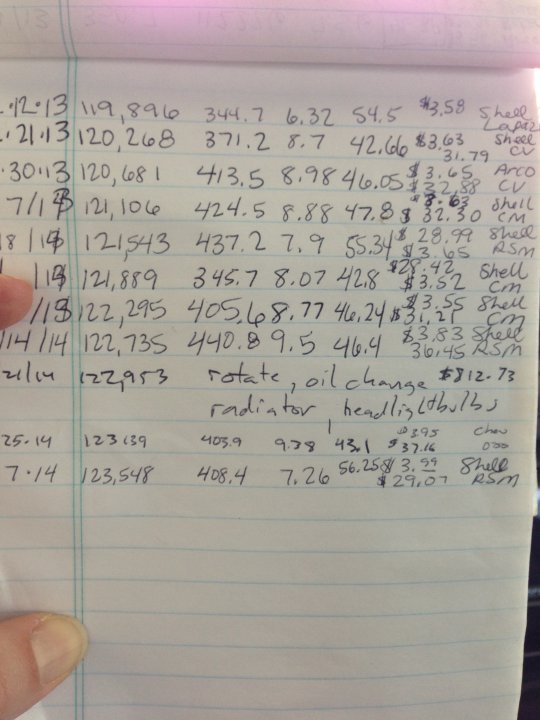 ·12·13 119,896 344.7 6.32 54.5 $3.58 Shell
Lapaz
·21·13 120,268 371.2 8.7 42.66 $3.63 Shell
31.79 CV
·30·13 120,681 413.5 8.98 46.05 $3.65 Arco
$32.88 CV
7/13 121,106 424.5 8.88 47.8 $3.63 Shell
$32.30 CM
18/13 121,543 437.2 7.9 55.34 $28.99 Shell
$3.65 RSM
/13 121,889 345.7 8.07 42.8 $28.42 Shell
$3.52 CM
/13 122,295 405.6 8.77 46.24 $3.55 Shell
$31.21 CM
/14/14 122,735 440.8 9.5 46.4 $3.83 Shell
36.45 RSM
21/14 122,953 rotate, oil change $812.73
radiator, headlightbulbs
25·14 123139 403.9 9.38 43.1 $3.95 Chev
$37.16
7·14 123,548 408.4 7.26 56.25 $3.99 Shell
$29.07 RSM